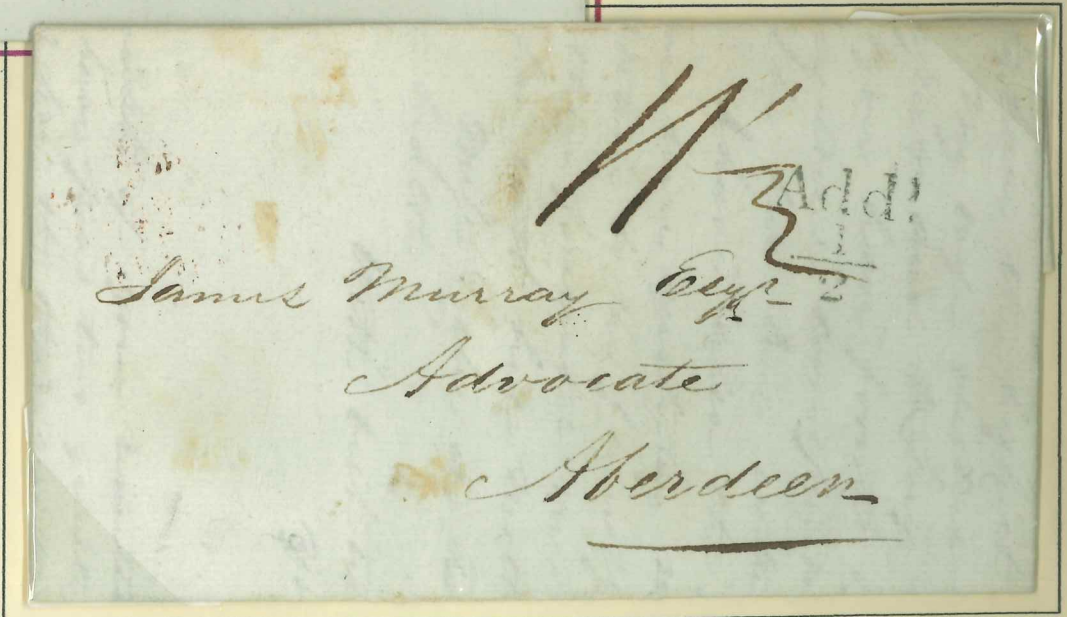 11
Addl
1
2
James Murray Esqr
Advocate
Aberdeen